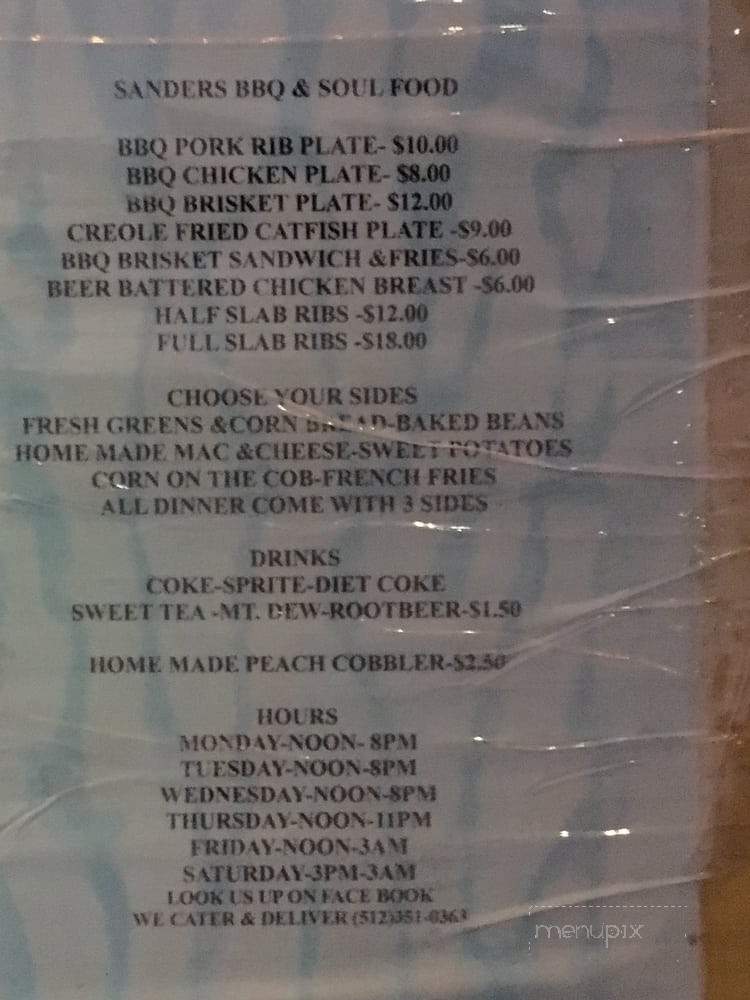 SANDERS BBQ & SOUL FOOD
BBQ PORK RIB PLATE- $10.00
BBQ CHICKEN PLATE- $8.00
BBQ BRISKET PLATE- $12.00
CREOLE FRIED CATFISH PLATE -$9.00
BBQ BRISKET SANDWICH &FRIES-$6.00
BEER BATTERED CHICKEN BREAST -$6.00
HALF SLAB RIBS -$12.00
FULL SLAB RIBS -$18.00
CHOOSE YOUR SIDES
FRESH GREENS &CORN BREAD-BAKED BEANS
HOME MADE MAC &CHEESE-SWEET POTATOES
CORN ON THE COB-FRENCH FRIES
ALL DINNER COME WITH 3 SIDES
DRINKS
COKE-SPRITE-DIET COKE
SWEET TEA -MT. DEW-ROOTBEER-$1.50
HOME MADE PEACH COBBLER-$2.50
HOURS
MONDAY-NOON- 8PM
TUESDAY-NOON-8PM
WEDNESDAY-NOON-8PM
THURSDAY-NOON-11PM
FRIDAY-NOON-3AM
SATURDAY-3PM-3AM
LOOK US UP ON FACE BOOK
WE CATER & DELIVER (512)351-0363
menupix